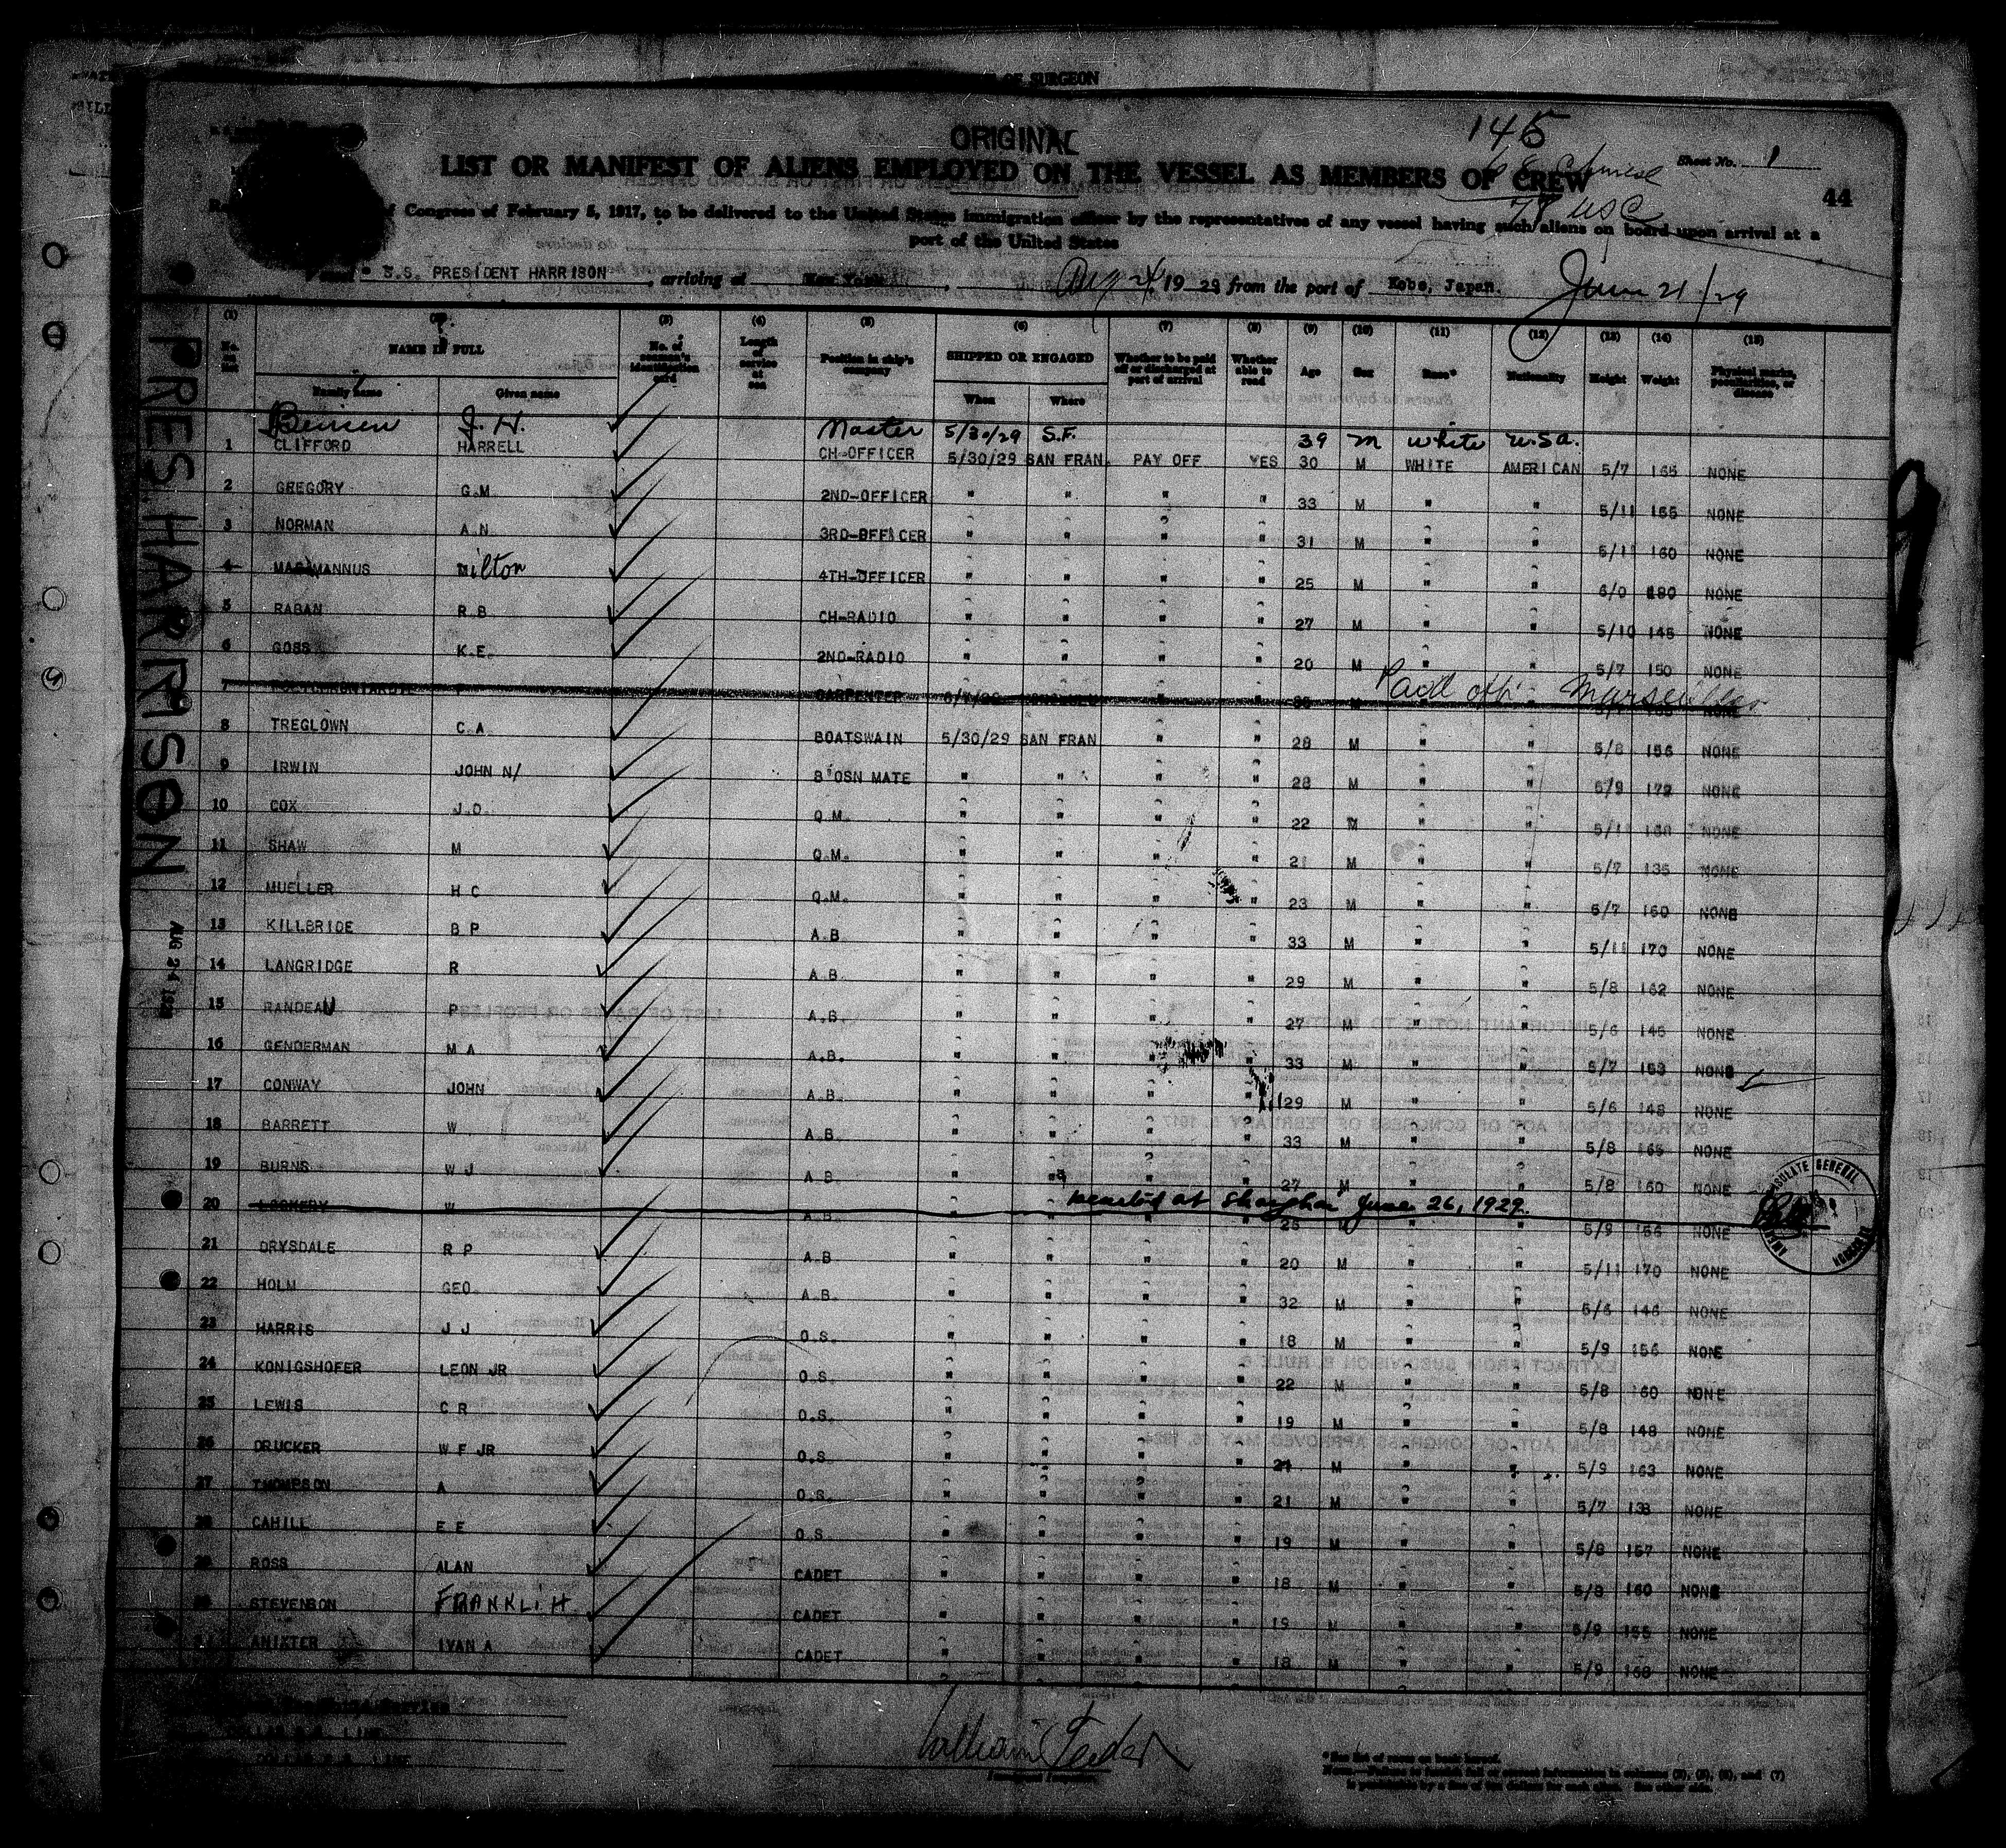 OF SURGEON
ORIGINAL
145
68 Chinese
77 USC
Sheet No. 1
44
LIST OR MANIFEST OF ALIENS EMPLOYED ON THE VESSEL AS MEMBERS OF CREW
of Congress of February 5, 1917, to be delivered to the United States immigration officer by the representatives of any vessel having such aliens on board upon arrival at a
port of the United States
S.S. PRESIDENT HARRISON, arriving at New York, Aug 24, 1929 from the port of Kobe, Japan. June 21/29
PRES. HARRISON
AUG 24 1929
(1) (2) (3) (4) (5) (6) (7) (8) (9) (10) (11) (12) (13) (14) (15)
No. on list NAME IN FULL No. of seaman's identification card Length of service at sea Position in ship's company SHIPPED OR ENGAGED Whether to be paid off or discharged at port of arrival Whether able to read Age Sex Race* Nationality Height Weight Physical marks, peculiarities, or disease
Family name Given name When Where
J. H. Master 5/30/29 S.F. 39 m white U.S.A.
1 CLIFFORD HARRELL CH-OFFICER 5/30/29 SAN FRAN. PAY OFF YES 30 M WHITE AMERICAN 5/7 165 NONE
2 GREGORY G.M. 2ND-OFFICER " " " " 33 M " " 5/11 165 NONE
3 NORMAN A.N. 3RD-OFFICER " " " " 31 M " " 5/11 160 NONE
4 MANNUS Milton 4TH-OFFICER " " " " 25 M " " 6/0 180 NONE
5 RABAN R.B. CH-RADIO " " " " 27 M " " 5/10 145 NONE
6 GOSS K.E. 2ND-RADIO " " " " 20 M " " 5/7 150 NONE
7 CARPENTER Paid off Marseilles NONE
8 TREGLOWN C.A. BOATSWAIN 5/30/29 SAN FRAN " " 28 M " " 5/8 156 NONE
9 IRWIN JOHN N/ B'OSN MATE " " " " 28 M " " 5/9 172 NONE
10 COX J.O. Q.M. " " " " 22 M " " 5/11 NONE
11 SHAW M Q.M. " " " " 21 M " " 5/7 135 NONE
12 MUELLER H C Q.M. " " " " 23 M " " 5/7 160 NONE
13 KILLBRIDE B P A.B. " " " " 33 M " " 5/11 170 NONE
14 LANGRIDGE R A.B. " " " " 29 M " " 5/8 162 NONE
15 RANDEAU P A.B. " " " " 27 M " " 5/6 145 NONE
16 GENDERMAN M A A.B. " " " " 33 M " " 5/7 153 NONE
17 CONWAY JOHN A.B. " " " " 29 M " " 5/6 148 NONE
18 BARRETT W. A.B. " " " " 33 M " " 5/8 165 NONE
19 BURNS W J A.B. " " " " 27 M " " 5/8 160 NONE
20 W A.B. Deserted at Shanghai June 26, 1929. 25 5/9 156 NONE
21 DRYSDALE R P A.B " " " " 20 M " " 5/11 170 NONE
22 HOLM GEO. A.B. " " " " 32 M " " 5/5 146 NONE
23 HARRIS J J O.S. " " " " 18 M " " 5/9 156 NONE
24 KONIGSHOFER LEON JR O.S. " " " " 22 M " " 5/8 160 NONE
25 LEWIS C R O.S. " " " " 19 M " " 5/8 148 NONE
26 DRUCKER W F JR O.S " " " " 21 M " " 5/9 163 NONE
27 THOMPSON A O.S. " " " " 21 M " " 5/7 138 NONE
28 CAHILL E E O.S. " " " " 19 M " " 5/8 157 NONE
29 ROSS ALAN CADET " " " " 18 M " " 5/8 160 NONE
STEVENSON FRANKLIH CADET " " " " 19 M " " 5/9 155 NONE
ANIXTER IVAN A CADET " " " " 18 M " " 5/9 168 NONE
CONSULATE GENERAL
DOLLAR S.S. LINE
DOLLAR S.S. LINE
Immigrant Inspector.
*See list of races on back hereof.